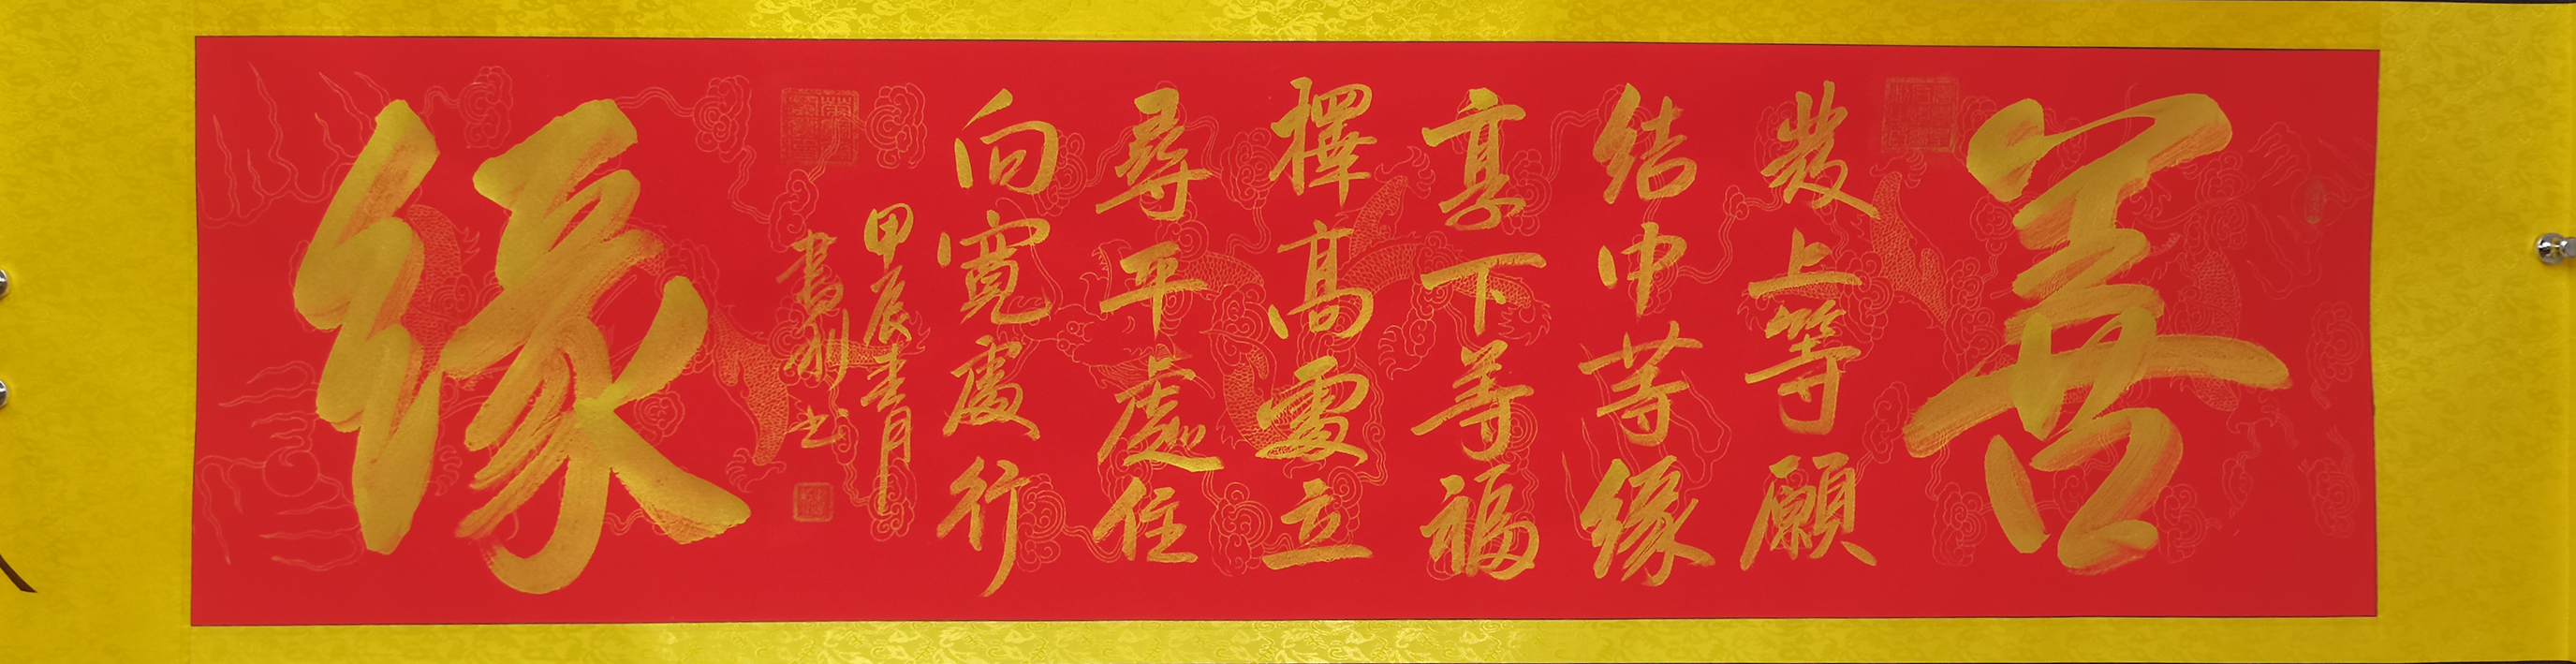 善
發上等願
結中等緣
享下等福
擇高處立
尋平處住
向寬處行
甲辰吉月
書刚书
緣